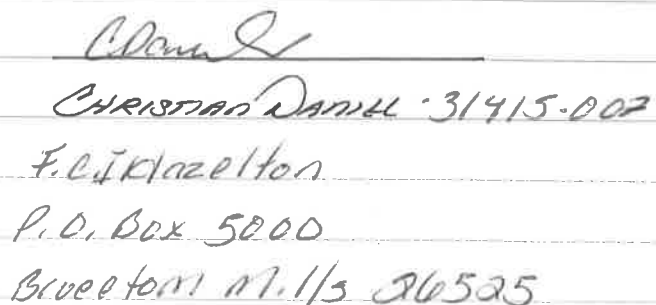 CDaniel
CHRISTIAN DANIEL - 31415-007
F.C.I Hazelton
P.O. Box 5000
Bruceton Mills 26525